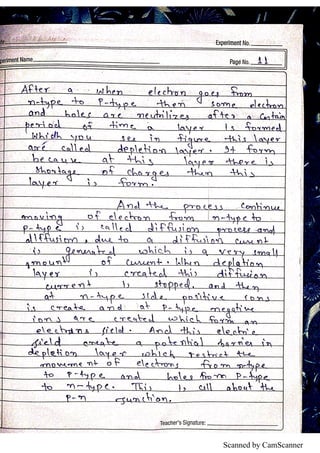 Experiment No.
periment Name
Page No. 11
After a when electron goes from
n-type to P-type then some electron
and holes are neutrilizes after a Contain
period of time a layer is formed
Which you see in figure this layer
are called depletion layer. It form
because at this layer there is
Shortage of charges then this
layer is form.
And the process Continue
moving of electron from n-type to
p-type is called diffusion process and
diffusion, due to a diffusion current
is generated which is a very small
amount of current. When depletion
layer is created this diffusion
current is stopped. and then
at n-type side positive ions
is create and at P-type negative
ions are created which form an
electrons field. And this electric
field create a potential barrier in
depletion layer which restrict the
movement of electrons from n-type
to P-type and holes from P-type
to n-type. This is all about the
P-n junction.
Teacher's Signature:
Scanned by CamScanner